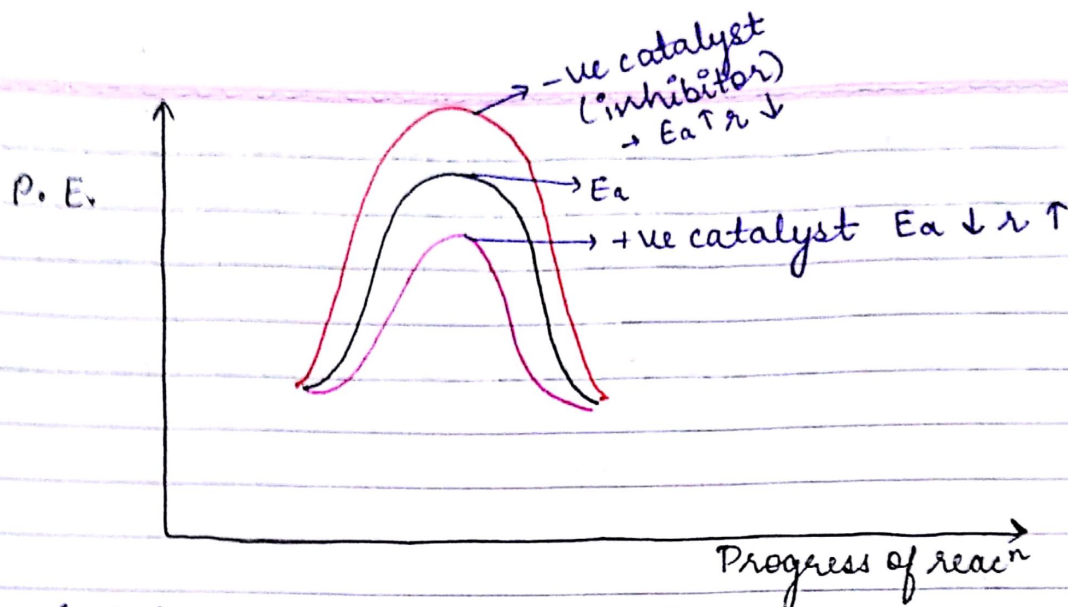 -ve catalyst
(inhibitor)
→ Ea↑ r ↓
P. E.
→ Ea
→ +ve catalyst Ea ↓ r ↑
Progress of reacⁿ